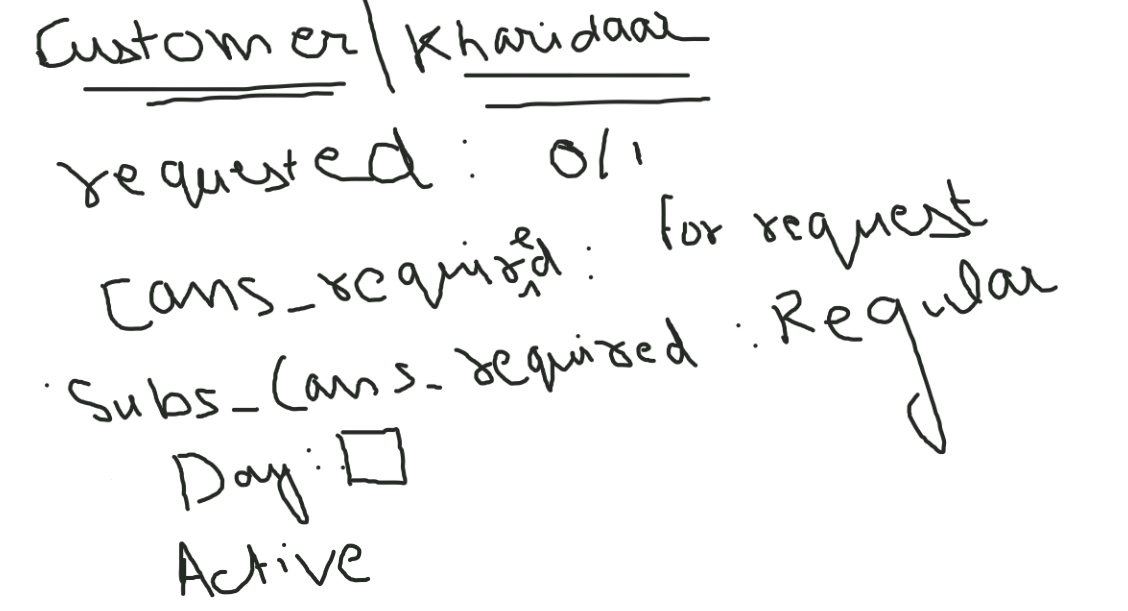 Customer/Kharidaar
requested : 0/1
Cans_required : For request
Subs_Cans_required : Regular
Day : □
Active